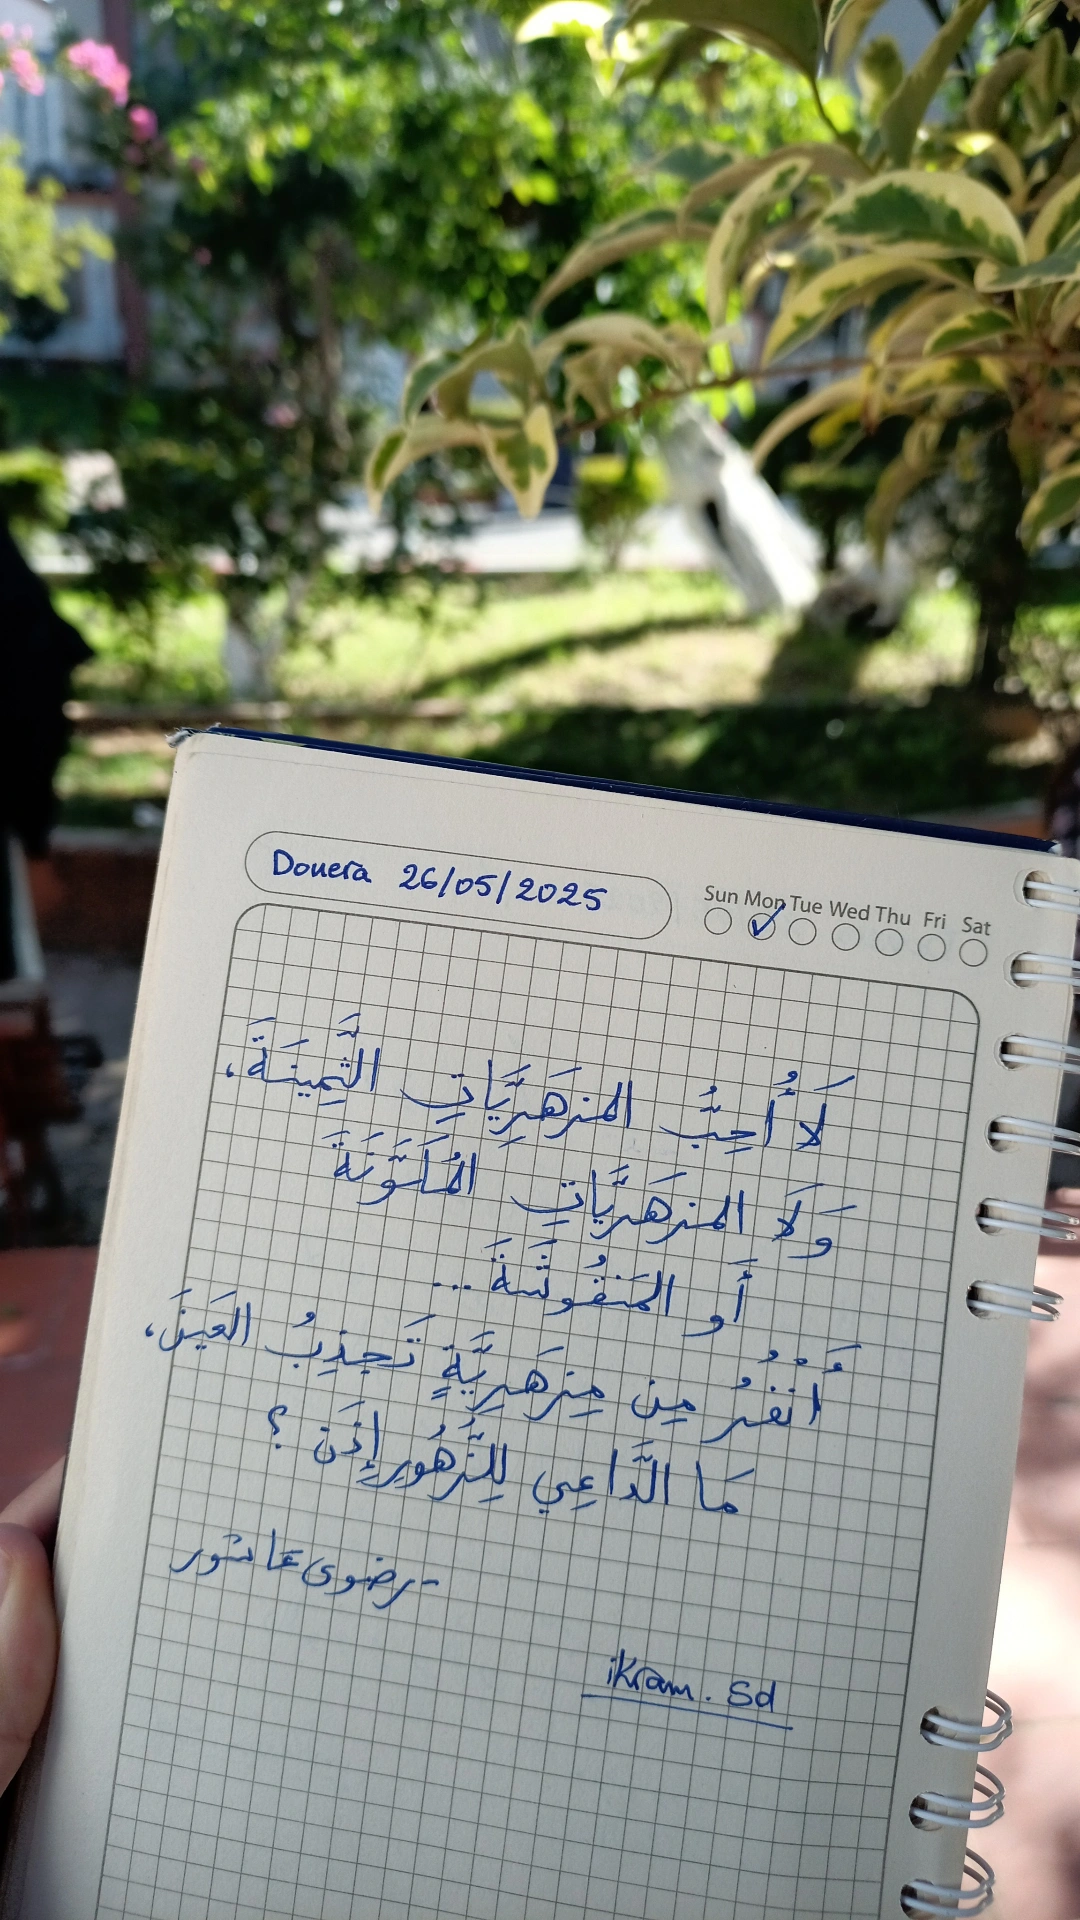 Douera 26/05/2025
Sun Mon Tue Wed Thu Fri Sat
لَا أُحِبُّ المزهَرِيَّاتِ الثَّمِينَةَ،
وَلَا المزهَريَّاتِ المُلَوَّنَةَ
أَو المَنقُوشَةَ ...
أَنْفُرُ مِن مِزهَرِيَّةٍ تَجذِبُ العَينَ،
مَا الدَّاعِي لِلزُّهُورِ إِذَن ؟
- رضوى عاشور
ikram. Sd